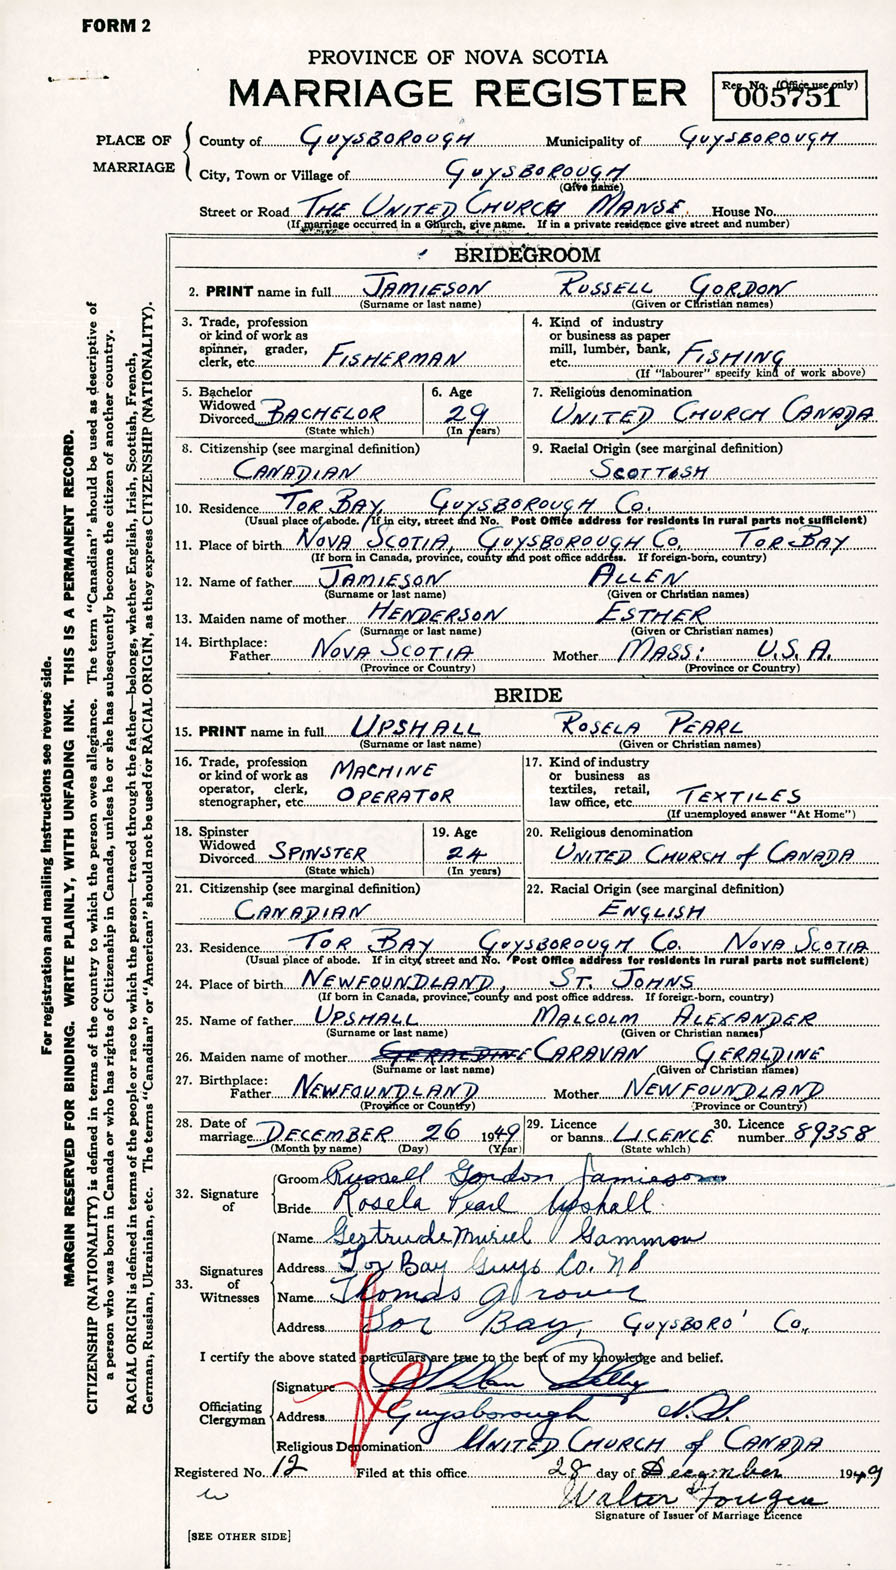 FORM 2
PROVINCE OF NOVA SCOTIA
MARRIAGE REGISTER
Reg. No. (Office use only)
005751
PLACE OF MARRIAGE
County of GUYSBOROUGH Municipality of GUYSBOROUGH
City, Town or Village of GUYSBOROUGH
(Give name)
Street or Road THE UNITED CHURCH MANSE. House No.
(If marriage occurred in a Church, give name. If in a private residence give street and number)
BRIDEGROOM
2. PRINT name in full JAMIESON RUSSELL GORDON
(Surname or last name) (Given or Christian names)
3. Trade, profession or kind of work as spinner, grader, clerk, etc. FISHERMAN
4. Kind of industry or business as paper mill, lumber, bank, etc. FISHING
(If "labourer" specify kind of work above)
5. Bachelor Widowed Divorced BACHELOR
(State which)
6. Age 29
(In years)
7. Religious denomination
UNITED CHURCH CANADA
8. Citizenship (see marginal definition)
CANADIAN
9. Racial Origin (see marginal definition)
SCOTTISH
10. Residence TOR BAY, GUYSBOROUGH CO.
(Usual place of abode. If in city, street and No. Post Office address for residents in rural parts not sufficient)
11. Place of birth NOVA SCOTIA, GUYSBOROUGH CO. TOR BAY
(If born in Canada, province, county and post office address. If foreign-born, country)
12. Name of father JAMIESON ALLEN
(Surname or last name) (Given or Christian names)
13. Maiden name of mother HENDERSON ESTHER
(Surname or last name) (Given or Christian names)
14. Birthplace:
Father NOVA SCOTIA Mother MASS: U.S.A.
(Province or Country) (Province or Country)
BRIDE
15. PRINT name in full UPSHALL ROSELA PEARL
(Surname or last name) (Given or Christian names)
16. Trade, profession or kind of work as operator, clerk, stenographer, etc. MACHINE OPERATOR
17. Kind of industry or business as textiles, retail, law office, etc. TEXTILES
(If unemployed answer "At Home")
18. Spinster Widowed Divorced SPINSTER
(State which)
19. Age
24
(In years)
20. Religious denomination
UNITED CHURCH of CANADA
21. Citizenship (see marginal definition)
CANADIAN
22. Racial Origin (see marginal definition)
ENGLISH
23. Residence TOR BAY GUYSBOROUGH CO. NOVA SCOTIA
(Usual place of abode. If in city, street and No. Post Office address for residents in rural parts not sufficient)
24. Place of birth NEWFOUNDLAND, ST. JOHNS
(If born in Canada, province, county and post office address. If foreign-born, country)
25. Name of father UPSHALL MALCOLM ALEXANDER
(Surname or last name) (Given or Christian names)
26. Maiden name of mother GERALDINE CARAVAN GERALDINE
(Surname or last name) (Given or Christian names)
27. Birthplace:
Father NEWFOUNDLAND Mother NEWFOUNDLAND
(Province or Country) (Province or Country)
28. Date of marriage DECEMBER 26 1949
(Month by name) (Day) (Year)
29. Licence or banns LICENCE
(State which)
30. Licence number 89358
32. Signature of
Groom Russell Gordon Jamieson
Bride Rosela Pearl Upshall
33. Signatures of Witnesses
Name Gertrude Muriel Gammon
Address Tor Bay Guys Co. NS
Name Thomas
Address Tor Bay, GUYSBORO' Co.,
I certify the above stated particulars are true to the best of my knowledge and belief.
Officiating Clergyman
Signature
Address Guysborough N.S.
Religious Denomination UNITED CHURCH of CANADA
Registered No. 12 Filed at this office 28 day of December 1949
Walter
Signature of Issuer of Marriage Licence
[SEE OTHER SIDE]
For registration and mailing instructions see reverse side.
MARGIN RESERVED FOR BINDING. WRITE PLAINLY, WITH UNFADING INK. THIS IS A PERMANENT RECORD.
CITIZENSHIP (NATIONALITY) is defined in terms of the country to which the person owes allegiance. The term "Canadian" should be used as descriptive of
a person who was born in Canada or who has rights of Citizenship in Canada, unless he or she has subsequently become the citizen of another country.
RACIAL ORIGIN is defined in terms of the people or race to which the person—traced through the father—belongs, whether English, Irish, Scottish, French,
German, Russian, Ukrainian, etc. The terms "Canadian" or "American" should not be used for RACIAL ORIGIN, as they express CITIZENSHIP (NATIONALITY).